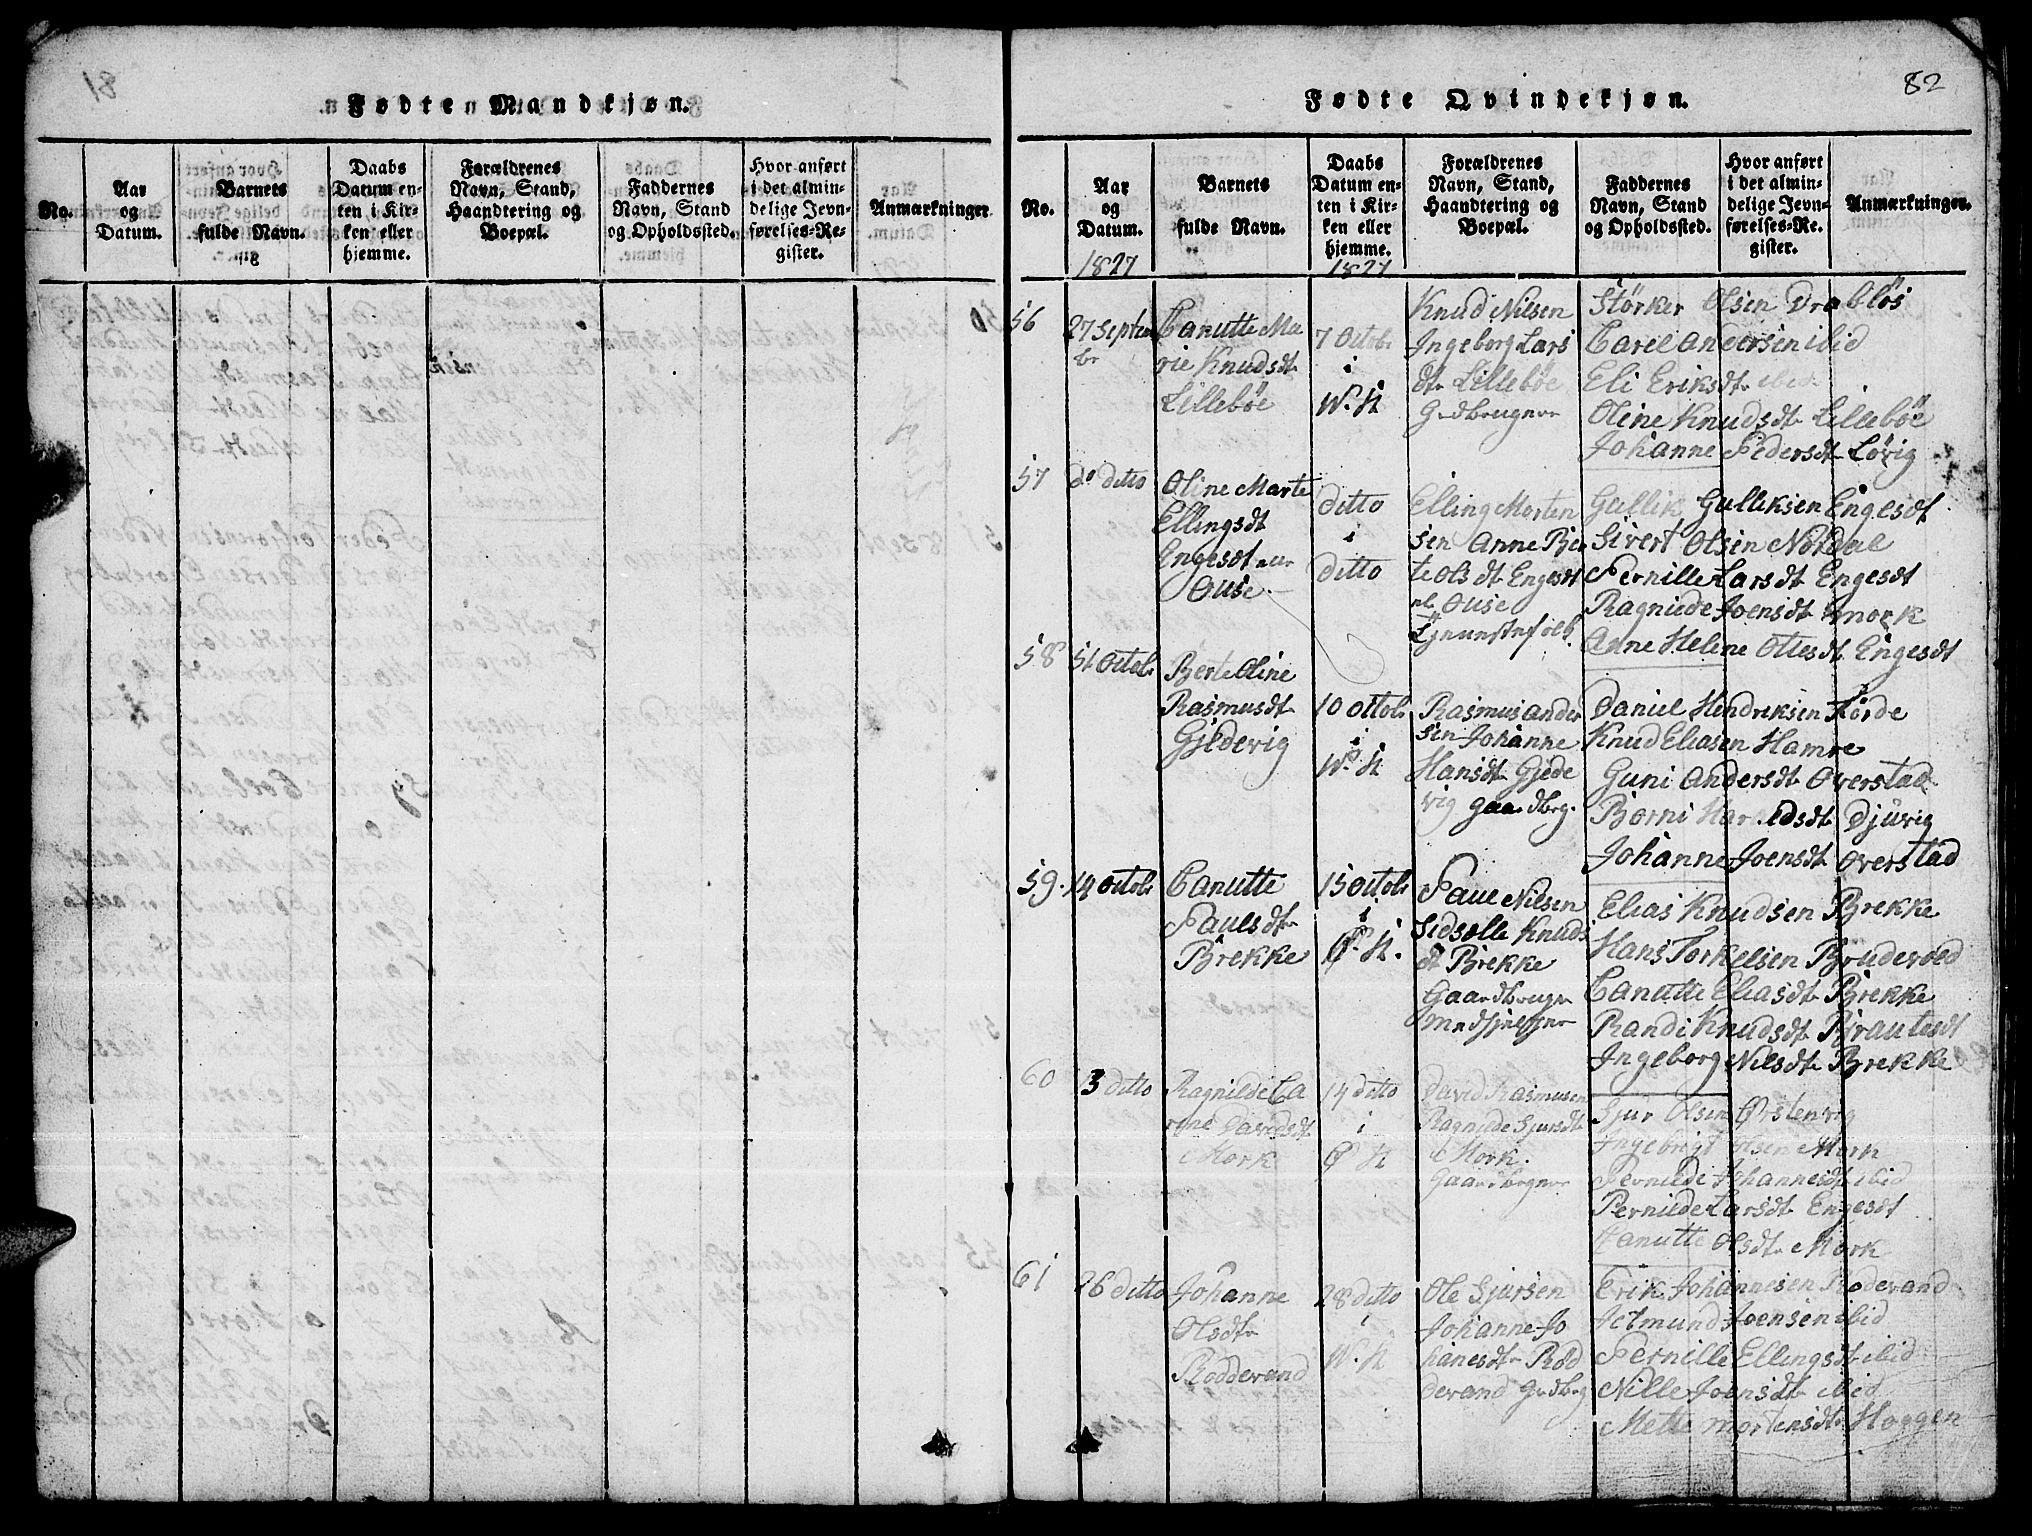 81
Fødte Mandkjøn.
No.
Aar
og
Datum.
Barnets
fulde Navn.
Daabs
Datum en-
ten i Kir-
ken eller
hjemme.
Forældrenes
Navn, Stand,
Haandtering og
Boepæl.
Faddernes
Navn, Stand
og Opholdssted.
Hvor anført
i det almin-
delige Jevn-
førelses-Re-
gister.
Anmærkninger
82
Fødte Qvindekjøn.
No.
Aar
og
Datum.
Barnets
fulde Navn.
Daabs
Datum en-
ten i Kir-
ken eller
hjemme.
Forældrenes
Navn, Stand,
Haandtering og
Boepæl.
Faddernes
Navn, Stand
og Opholdssted.
Hvor anført
i det almin-
delige Jevn-
førelses-Re-
gister.
Anmærkninger.
1827
1827
56
27 Septem
br
Canutte Ma
rie Knudsdt
Lillebøe
7 Octobr
i
W. K
Knud Nilsen
Ingeborg Lars
dtr Lillebøe
Grdbrugner
Størker Olsen Drabløs
Carel Andersen ibid
Eli Eriksdtr ibid
Oline Knudsdtr Lillebøe
Johanne Pedersdtr Løvig
57
do ditto
Oline Marte
Ellingsdt
Engesdt
Ouse
ditto
i
ditto
Elling Morten
sen Anne Bir
te Olsdt Engesdt
Ouse
Gullik Gulliksen Engesdt
Sivert Olsen Nordal
Pernille Larsdt Engesdt
Ragnilde Joensdt Mork
Anne Helene Ottesdt Engesdt
58
Octobr
Berte Oline
Rasmusdt
Gjedevig
10 Octobr
i
W. K
Rasmus Ander
sen Johanne
Hansdt Gjede
vig gaardbrg.
Daniel Hendriksen Hørde
Knud Eliasen Hamre
Guni Andersdt Overstad
Børni Haraldsdtr Djuvig
Johanne Joensdt Overstad
59
14 Octobr
Canutte
Paulsdtr
Brekke
15 Octobr
i
Ø. K.
Paul Nilsen
Sidsælle Knuds
dt Brekke
Gaardbruger
Medhjelper
Elias Knudsen Brekke
Hans Torkelsen Brudevold
Canutte Eliasdt Brekke
Randi Knudsdt Brautesdt
Ingeborg Nilsdt Brekke
60
3 ditto
Ragnilde Ca
rine Davidsdt
Mork
14 ditto
i
Ø K
David Rasmusen
Ragnilde Sjursdt
Mork.
Gaardbrgner
Sjur Olsen Ørstenvig
Ingebrigt Olsen Mork
Pernilde Johannesdt ibid
Pernilde Larsdt Engesdt
Hanutte Olsdtr Mork
61
26 ditto
Johanne
Olsdtr
Rodderand
28 ditto
i
W. K
Ole Sjursen
Johanne Jo
hanesdtr Rød
derand Grdbrg
Erik Johannesen Roderand
Jetmund Joensen ibid
Pernille Ellingsdt ibid
Nille Joensdt ibid
Mette Mortensdt Haagen